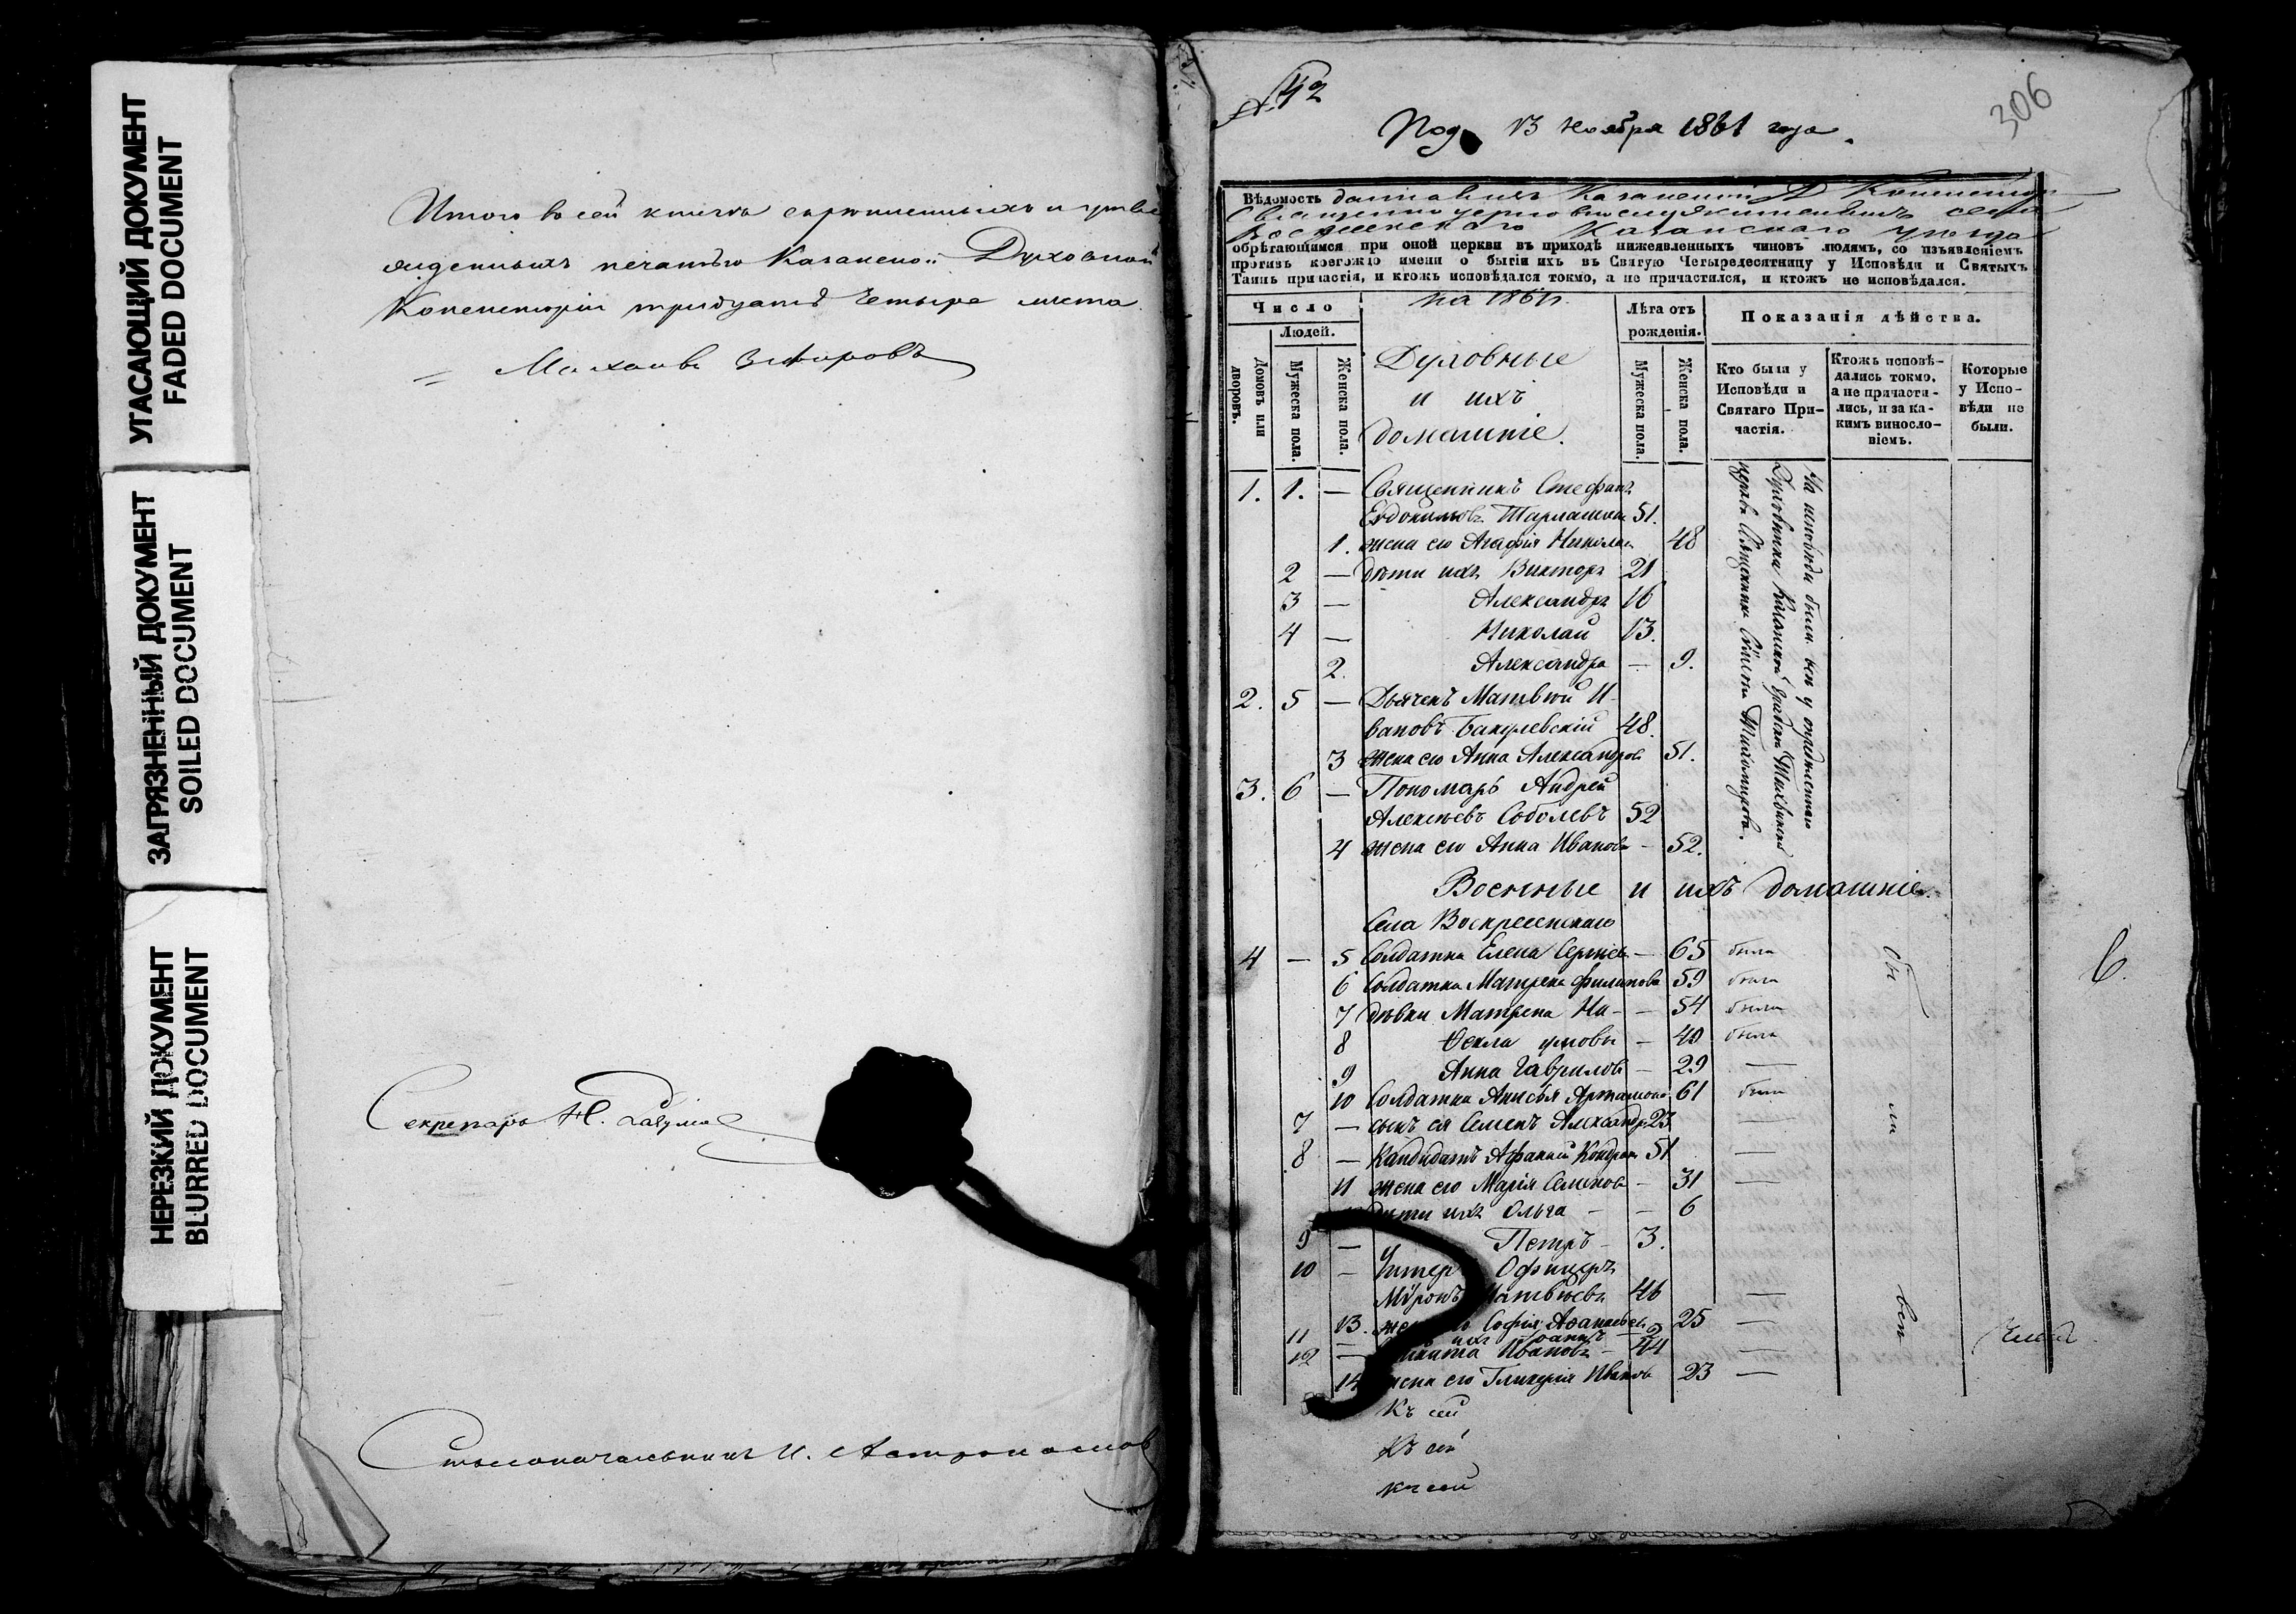 УГАСАЮЩИЙ ДОКУМЕНТ
FADED DOCUMENT
ЗАГРЯЗНЕННЫЙ ДОКУМЕНТ
SOILED DOCUMENT
НЕРЕЗКИЙ ДОКУМЕНТ
BLURRED DOCUMENT
Итого въ сей книгѣ скрѣпленныхъ и утвер
жденныхъ печатью Казанской Духовной
Консисторіи тридцать четыре листа
Секретарь Н.
Столоначальникъ И. Астрономовъ
№ 42
306
Под. 13 Ноября 1861 года.
Вѣдомость Казанской Д. Консисторіи
Священно церковнослужителями села
Воскресенскаго Казанскаго уѣзда
обрѣтающимся при оной церкви въ приходѣ нижеявленныхъ чиновъ людямъ, со изъявленіемъ
противъ коегождо имени о бытіи ихъ въ Святую Четыредесятницу у Исповѣди и Святыхъ
Таинъ причастія, и ктожъ исповѣдался токмо, а не причастился, и ктожъ не исповѣдался.
на 1861 г.
Число
Людей.
Домовъ или дворовъ.
Мужеска пола.
Женска пола.
Духовные
и ихъ
домашніе.
Лѣта отъ
рожденія.
Мужеска пола.
Женска пола.
Показанія дѣйства.
Кто были у
Исповѣди и
Святаго При-
частія.
Ктожъ исповѣ-
дались токмо,
а не причасти-
лись, и за ка-
кимъ виносло-
віемъ.
Которые
у Испо-
вѣди не
были.
1. 1. — Священникъ Стефанъ
Евдокимовъ 51.
1. жена его Агафія Никола 48
2 — дѣти ихъ Викторъ 21
3 — Александръ 16
4 — Николай 13.
2. Александра — 9.
2. 5 — Дьячекъ Матвѣй И-
вановъ Бакулевскій 48.
3 жена его Анна Александров 51.
3. 6 — Пономарь Андрей
Алексѣевъ Соболевъ 52
4 жена его Анна Иванова — 52.
На исповѣди были всѣ у опредѣленнаго
Военные и ихъ домашніе.
Села Воскресенскаго
4 — 5 Солдатка Елена Сергѣев — 65 была
6 Солдатка Матрена Филипова 59 была
7 дѣвки Матрена На- — 54 была
8 Ѳекла умовы — 40 была
9 Анна Гаврилов — 29 —
10 Солдатка Анисья Артамоно 61 была
7 — сынъ ея Семенъ Александр. 23 —
8 — Кандидатъ Афанасій Кондрат 51 —
11 жена его Марія Семенова — 31 —
дѣти ихъ Ольга — — 6
9 — Петръ — 3.
10 — Унтеръ Офицеръ
Миронъ Матвѣевъ 46 —
13. Софія Аѳанасьев 25 —
11
12 — Никита Ивановъ — 44 —
14 жена его Гликерія Иванов 23 —
Къ сей
Къ сей
къ сей